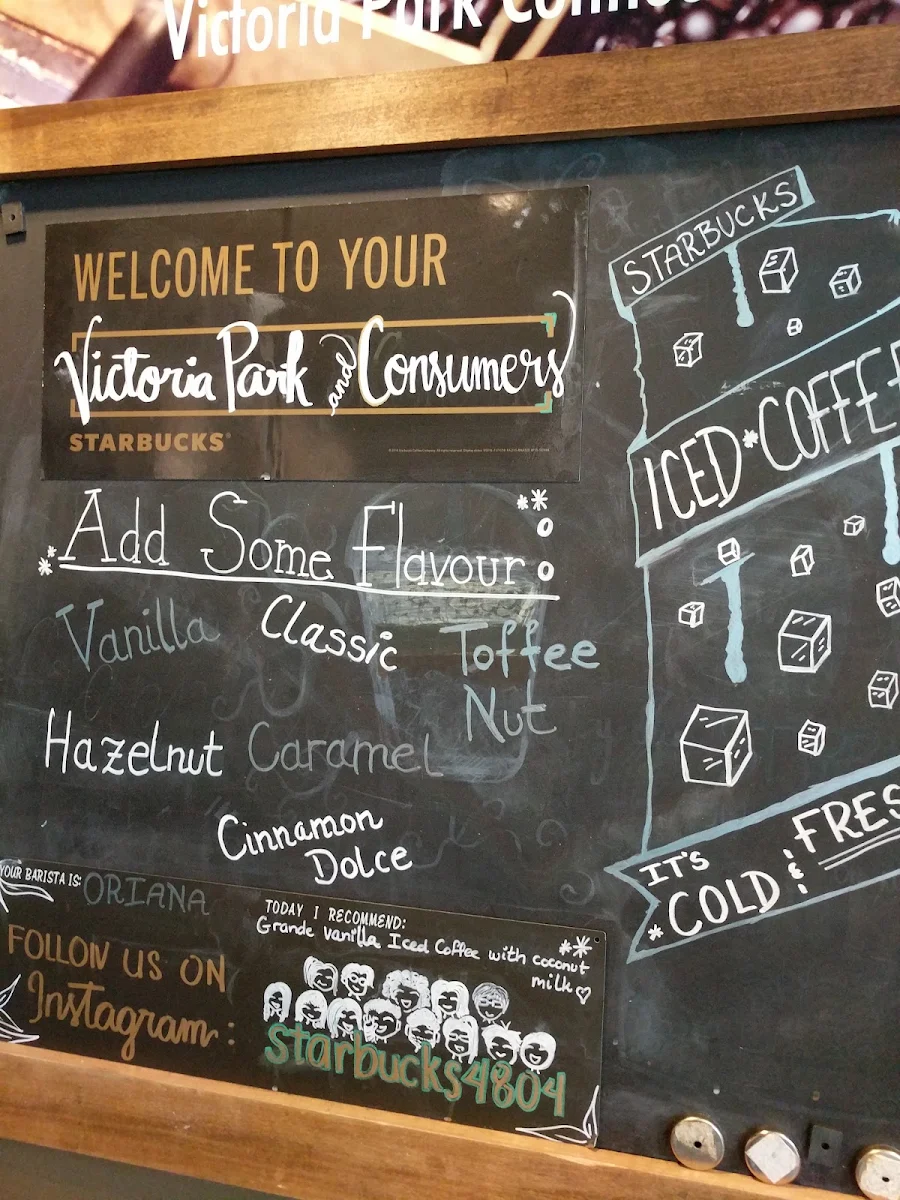 Victoria Park
WELCOME TO YOUR
Victoria Park and Consumers
STARBUCKS
Add Some Flavour
Vanilla
Classic
Toffee
Nut
Hazelnut
Caramel
Cinnamon
Dolce
YOUR BARISTA IS: ORIANA
FOLLOW US ON
Instagram:
TODAY I RECOMMEND:
Grande vanilla Iced Coffee with coconut
milk
starbucks4804
STARBUCKS
ICED COFFE
IT'S
COLD & FRES